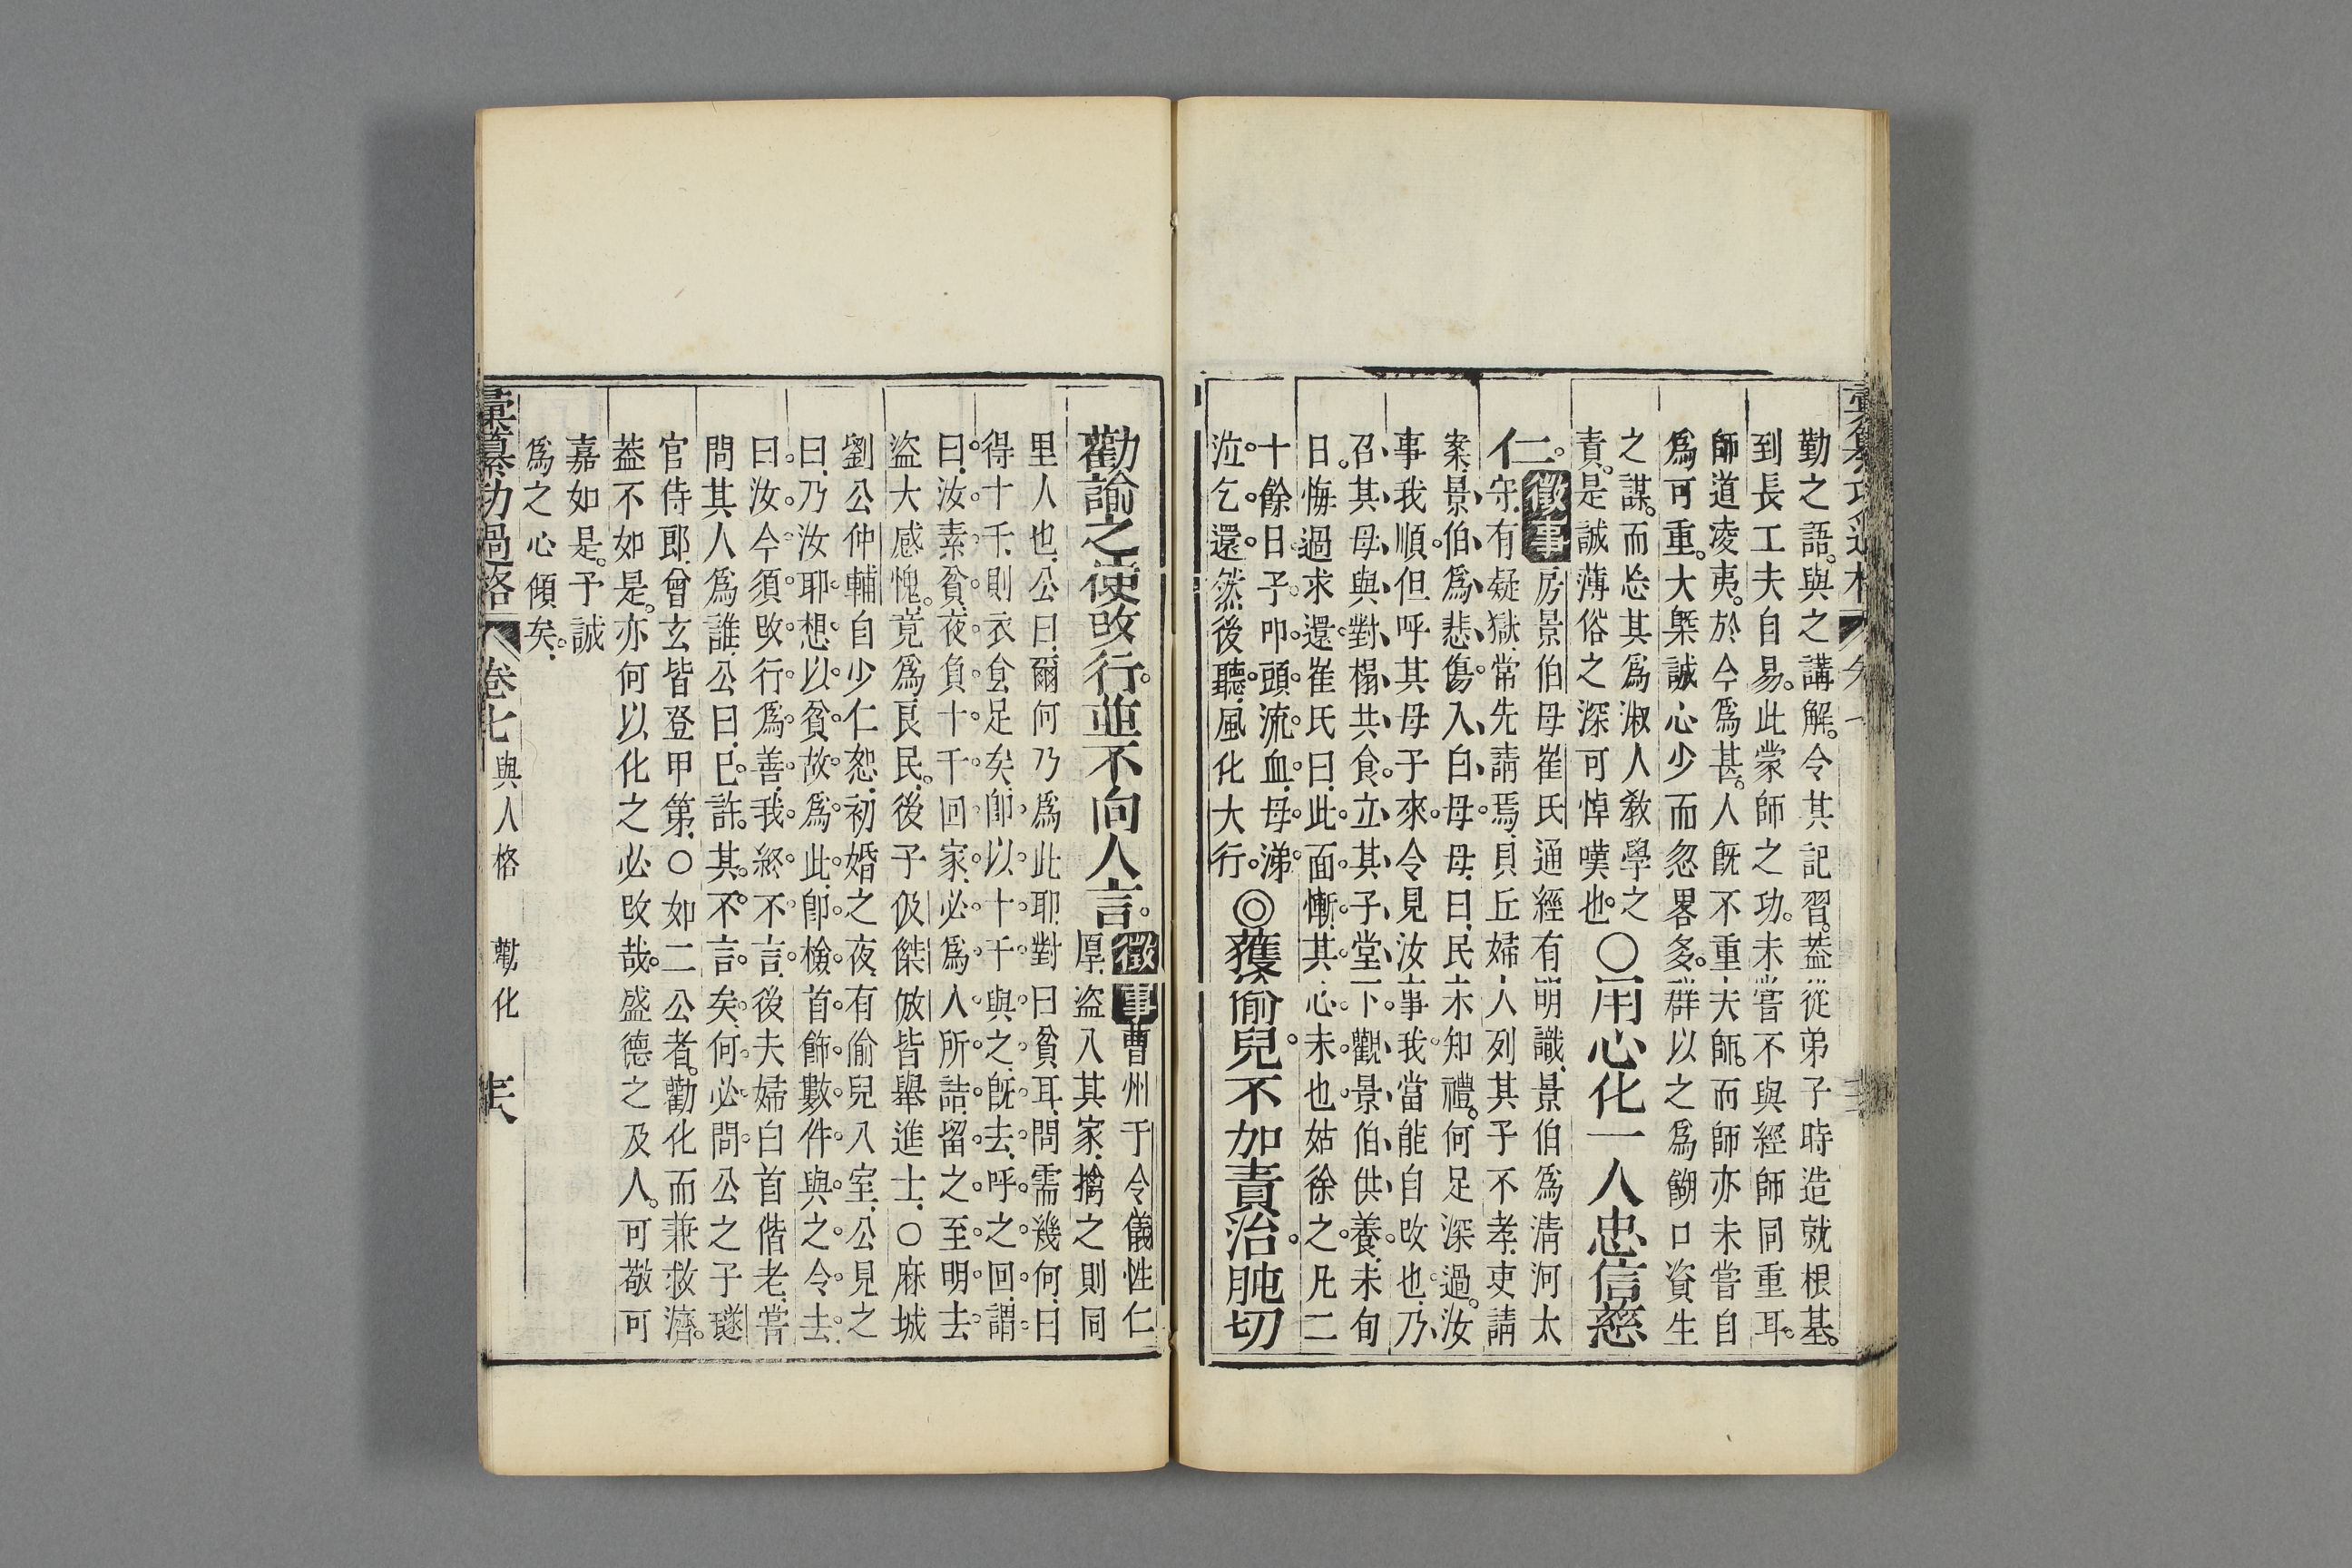 勤之語。與之講解。令其記習。葢從弟子時造就根基。
到長工夫自易。此蒙師之功。未嘗不與經師同重耳。
師道凌夷。於今爲甚。人旣不重夫師。而師亦未嘗自
爲可重。大槩誠心少而忽畧多。群以之爲餬口資生
之謀。而忘其爲淑人敎學之
責。是誠薄俗之深可悼嘆也。
〇用心化一人忠信慈
仁。
徵事
房景伯母崔氏通經有明識、景伯爲淸河太
守、有疑獄、常先請焉、貝丘婦人列其子不孝、吏請
案、景伯爲悲傷。入白母。母曰、民未知禮。何足深過。汝
事我順。但呼其母子來。令見汝事我。當能自改也、乃
召其母、與對榻共食。立其子堂下。觀景伯供養。未旬
日。悔過求還。崔氏曰、此面慚。其心未也、姑徐之。凡二
十餘日。子叩頭流血。母涕
泣。乞還。然後聽。風化大行。
◎獲偷兒。不加責治。肫切
勸諭之。使改行。並不向人言。
徵事
曹州于令儀性仁
厚、盜入其家、擒之則同
里人也、公曰、爾何乃爲此耶、對曰貧耳、問需幾何、曰
得十千、則衣食足矣、卽以十千與之、旣去、呼之回。謂
曰。汝素貧、夜負十千回家、必爲人所詰、留之至明去、
盜大感愧。竟爲良民。後子伋傑倣皆舉進士、〇麻城
劉公仲輔自少仁恕、初婚之夜、有偷兒入室、公見之
曰、乃汝耶、想以貧故爲此、卽檢首飾數件與之、令去、
曰。汝今須改行爲善、我終不言、後夫婦白首偕老、嘗
問其人爲誰、公曰、已許其不言矣、何必問、公之子璲
官侍郎、曾玄皆登甲第、〇如二公者。勸化而兼救濟。
葢不如是。亦何以化之必改哉。盛德之及人。可敬可
嘉如是。予誠
爲之心傾矣。
彙纂功過格 卷七 與人格 勸化